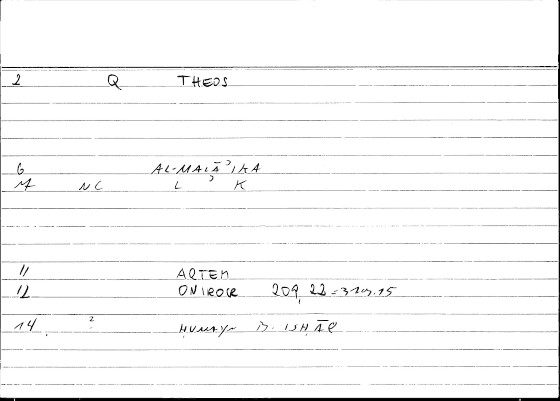 2 Q THEOS
6 AL-MALĀʾIKA
M NC L ʾ K
11 ARTEM
12 ONIROCR 209, 22 = 329.15
14 ? HUNAYN B. ISHĀQ